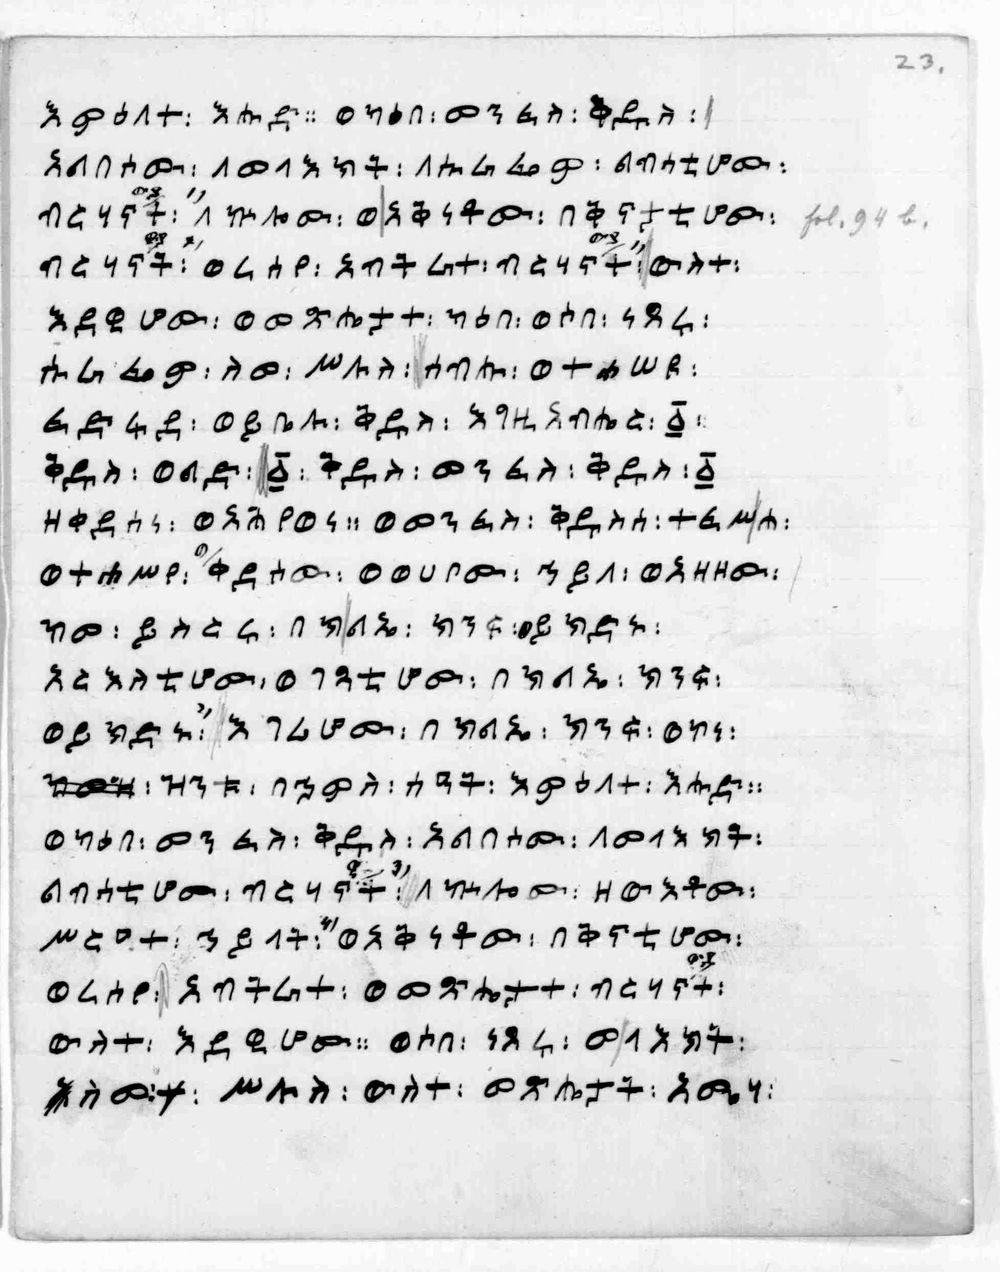 23.
እምዕለተ፡ እሑድ። ወካዕበ፡ መንፈስ፡ ቅዱስ፡
አልበሶሙ፡ ለመላእክት፡ ለሱራፌም፡ ልብሰቲሆሙ፡
ብርሃናተ፡ ለኵሎሙ፡ ወአቅነቶሙ፡ በቅናታቲሆሙ፡ fol. 94 b.
ብርሃናት፡ ወረሰየ፡ አብትራተ፡ ብርሃናተ፡ ውስተ፡
እደዊሆሙ፡ ወመጽሔታተ፡ ካዕበ፡ ወሶበ፡ ነጸሩ፡
ሱራፌም፡ ስመ፡ ሥሉስ፡ ሰብሑ፡ ወተሐሠዩ፡
ፈድፋደ፡ ወይቤሉ፡ ቅዱስ፡ እግዚአብሔር፡ ፩፡
ቅዱስ፡ ወልድ፡ ፩፡ ቅዱስ፡ መንፈስ፡ ቅዱስ፡ ፩
ዘቀደሰነ፡ ወአሕየወነ። ወመንፈስ፡ ቅዱስሰ፡ ተፈሥሐ፡
ወተሐሥየ፡ ቀደሰሙ፡ ወወሀቦሙ፡ ኀይለ፡ ወአዘዞሙ፡
ከመ፡ ይስድሩ፡ በክልኤ፡ ክንፍ፡ ወይክድኑ፡
አርእስቲሆሙ፡ ወገጻቲሆሙ፡ በክልኤ፡ ክንፍ፡
ወይክድኑ፡ እገሪሆሙ፡ በክልኤ፡ ክንፍ፡ ወኮነ፡
ዝንቱ፡ በኃምስ፡ ሰዓት፡ እምዕለተ፡ እሑድ።
ወካዕበ፡ መንፈስ፡ ቅዱስ፡ አልበሶሙ፡ ለመላእክት፡
ልብሰቲሆሙ፡ ብርሃናተ፡ ለኵሎሙ፡ ዘውእቶሙ፡
ሥርዓተ፡ ኀይላት፡ ወአቅነቶሙ፡ በቅናቲሆሙ፡
ወረሰየ፡ አብትራተ፡ ወመጽሔታተ፡ ብርሃናተ፡
ውስተ፡ እደዊሆሙ። ወሶበ፡ ነጸሩ፡ መላእክት፡
ሥሉስ፡ ውስተ፡ መጽሔታት፡ አሜሃ፡